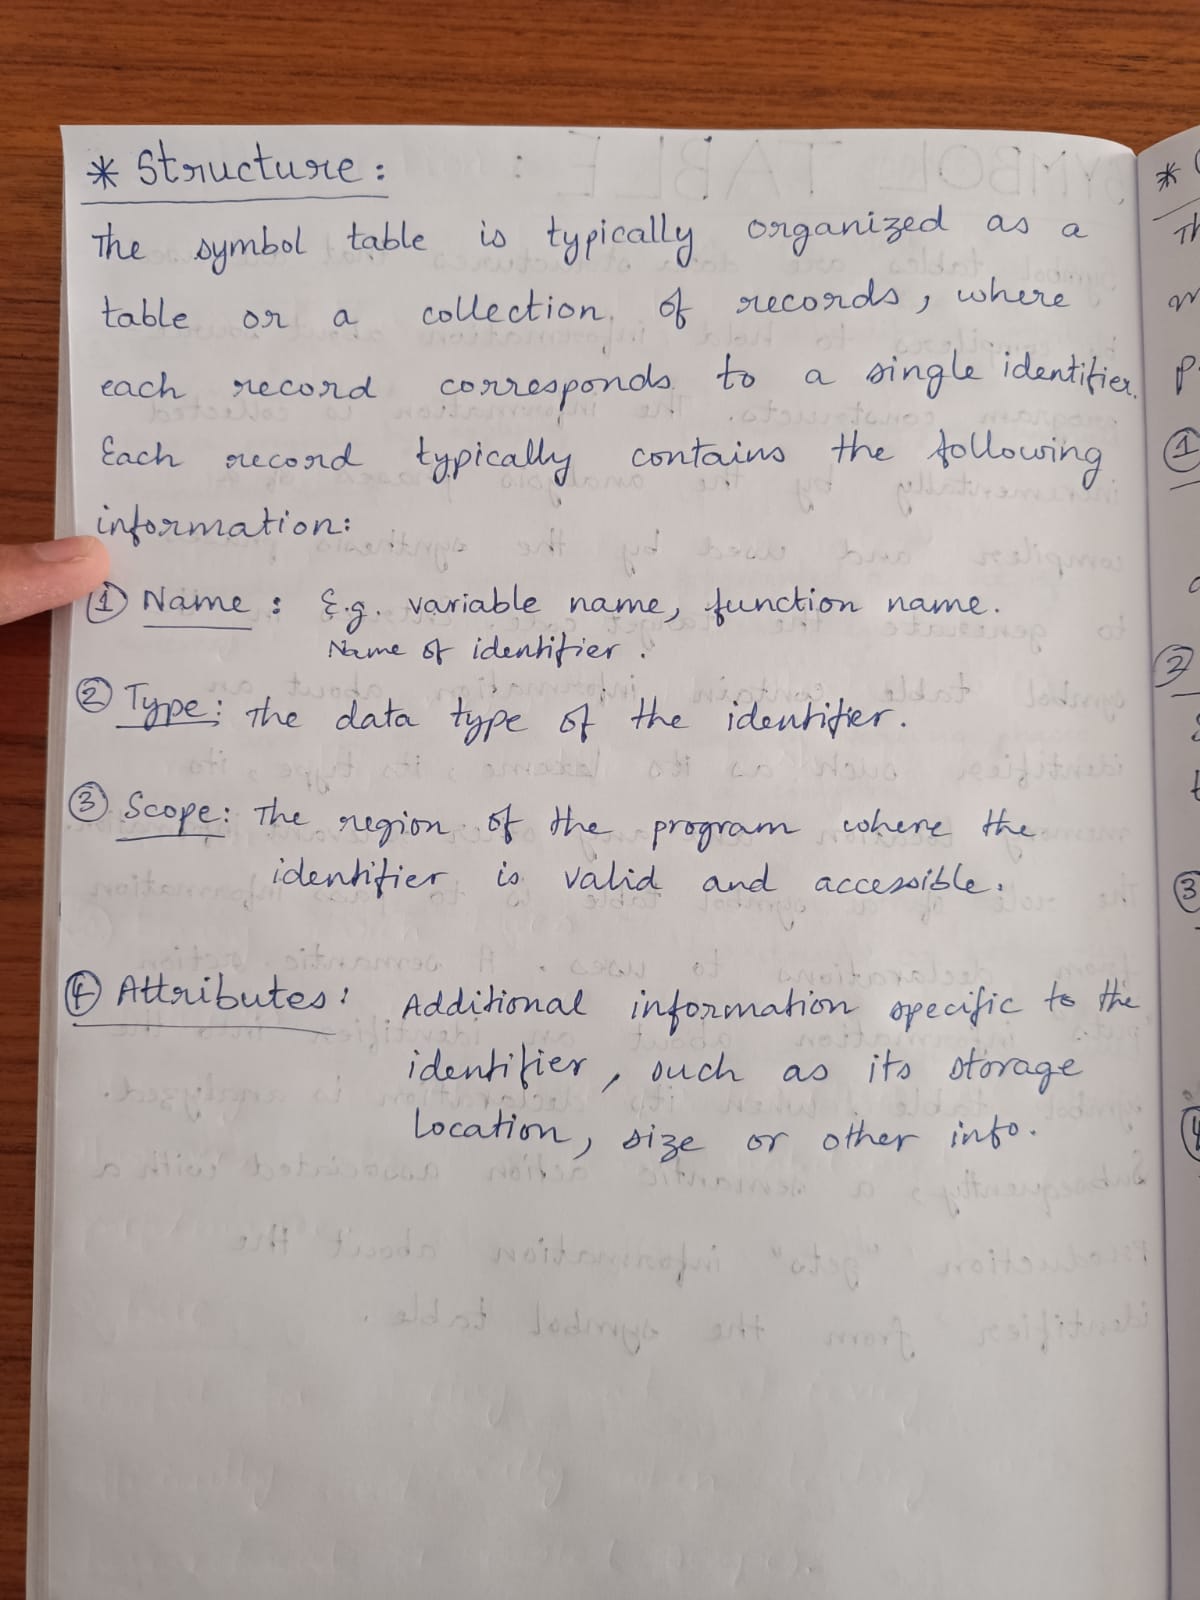 * Structure :
The symbol table is typically organized as a
table or a collection of records, where
each record corresponds to a single identifier.
Each record typically contains the following
information:
① Name : E.g. variable name, function name.
Name of identifier.
② Type: The data type of the identifier.
③ Scope: The region of the program where the
identifier is valid and accessible.
④ Attributes: Additional information specific to the
identifier, such as its storage
location, size or other info.